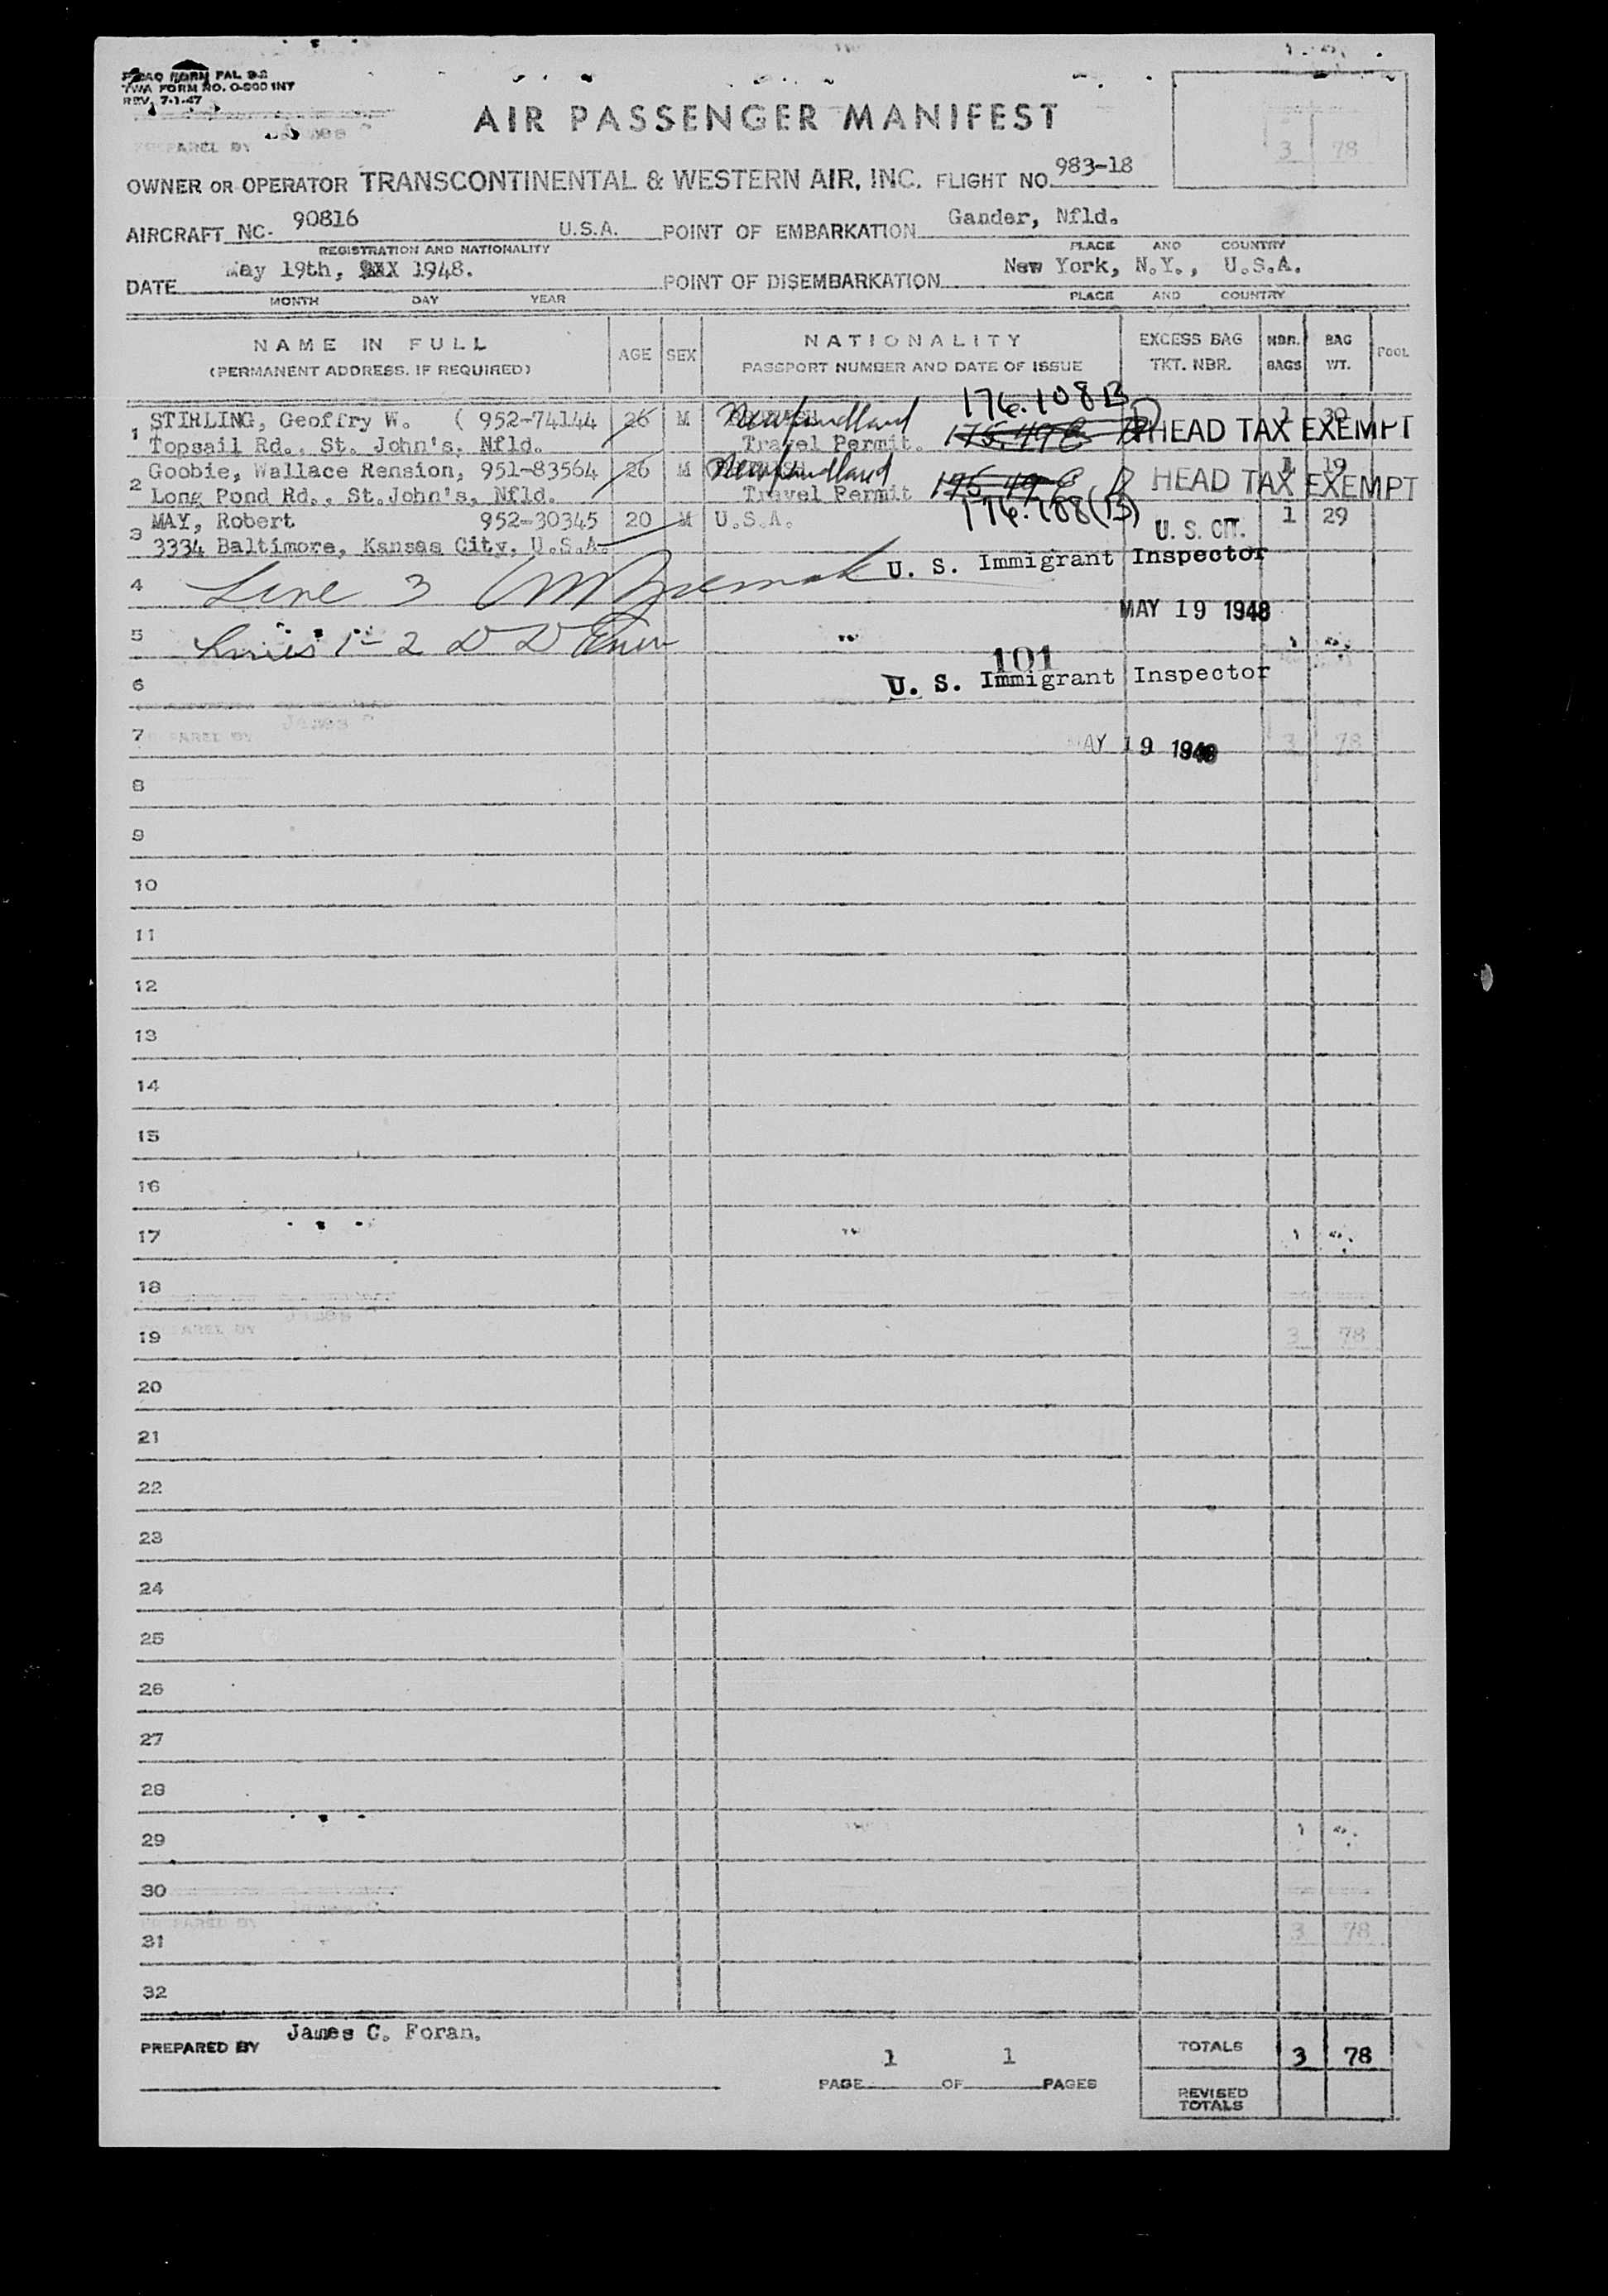 TWA FORM NO. O-900 INT
REV. 7-1-47
AIR PASSENGER MANIFEST
OWNER OR OPERATOR TRANSCONTINENTAL & WESTERN AIR, INC. FLIGHT NO. 983-18
AIRCRAFT NC- 90816 U.S.A. POINT OF EMBARKATION Gander, Nfld.
REGISTRATION AND NATIONALITY PLACE AND COUNTRY
DATE May 19th, 1948. POINT OF DISEMBARKATION New York, N.Y., U.S.A.
MONTH DAY YEAR PLACE AND COUNTRY
NAME IN FULL AGE SEX NATIONALITY EXCESS BAG NBR. BAG POOL
(PERMANENT ADDRESS, IF REQUIRED) PASSPORT NUMBER AND DATE OF ISSUE TKT. NBR. BAGS WT.
176.108B
1 STIRLING, Geoffry W. ( 952-74144 26 M Newfoundland 1 30
Topsail Rd., St. John's, Nfld. Travel Permit. HEAD TAX EXEMPT
2 Goobie, Wallace Rension, 951-83564 26 M Newfoundland 1 19
Long Pond Rd., St.John's, Nfld. Travel Permit HEAD TAX EXEMPT
176.108(B)
3 MAY, Robert 952-30345 20 M U.S.A. U. S. CIT. 1 29
3334 Baltimore, Kansas City, U.S.A.
4 Line 3 U. S. Immigrant Inspector
MAY 19 1948
5 Lines 1-2 D D
101
6 U. S. Immigrant Inspector
7 MAY 19 1948
8
9
10
11
12
13
14
15
16
17
18
19
20
21
22
23
24
25
26
27
28
29
30
31
32
PREPARED BY James C. Foran.
PAGE 1 OF 1 PAGES
TOTALS 3 78
REVISED
TOTALS